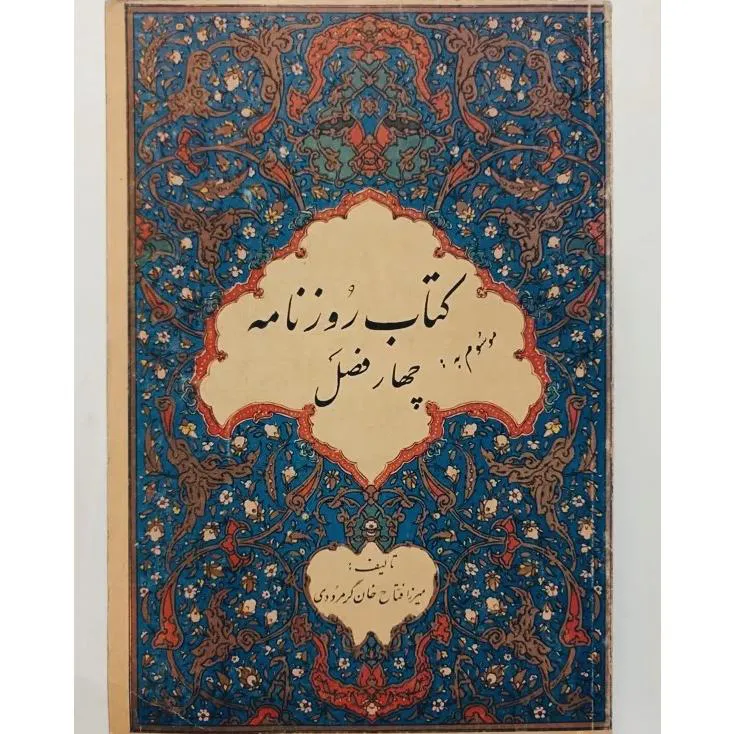 کتاب روزنامه
موسوم به:
چهار فصل
تالیف:
میرزا فتاح خان گرمرودی